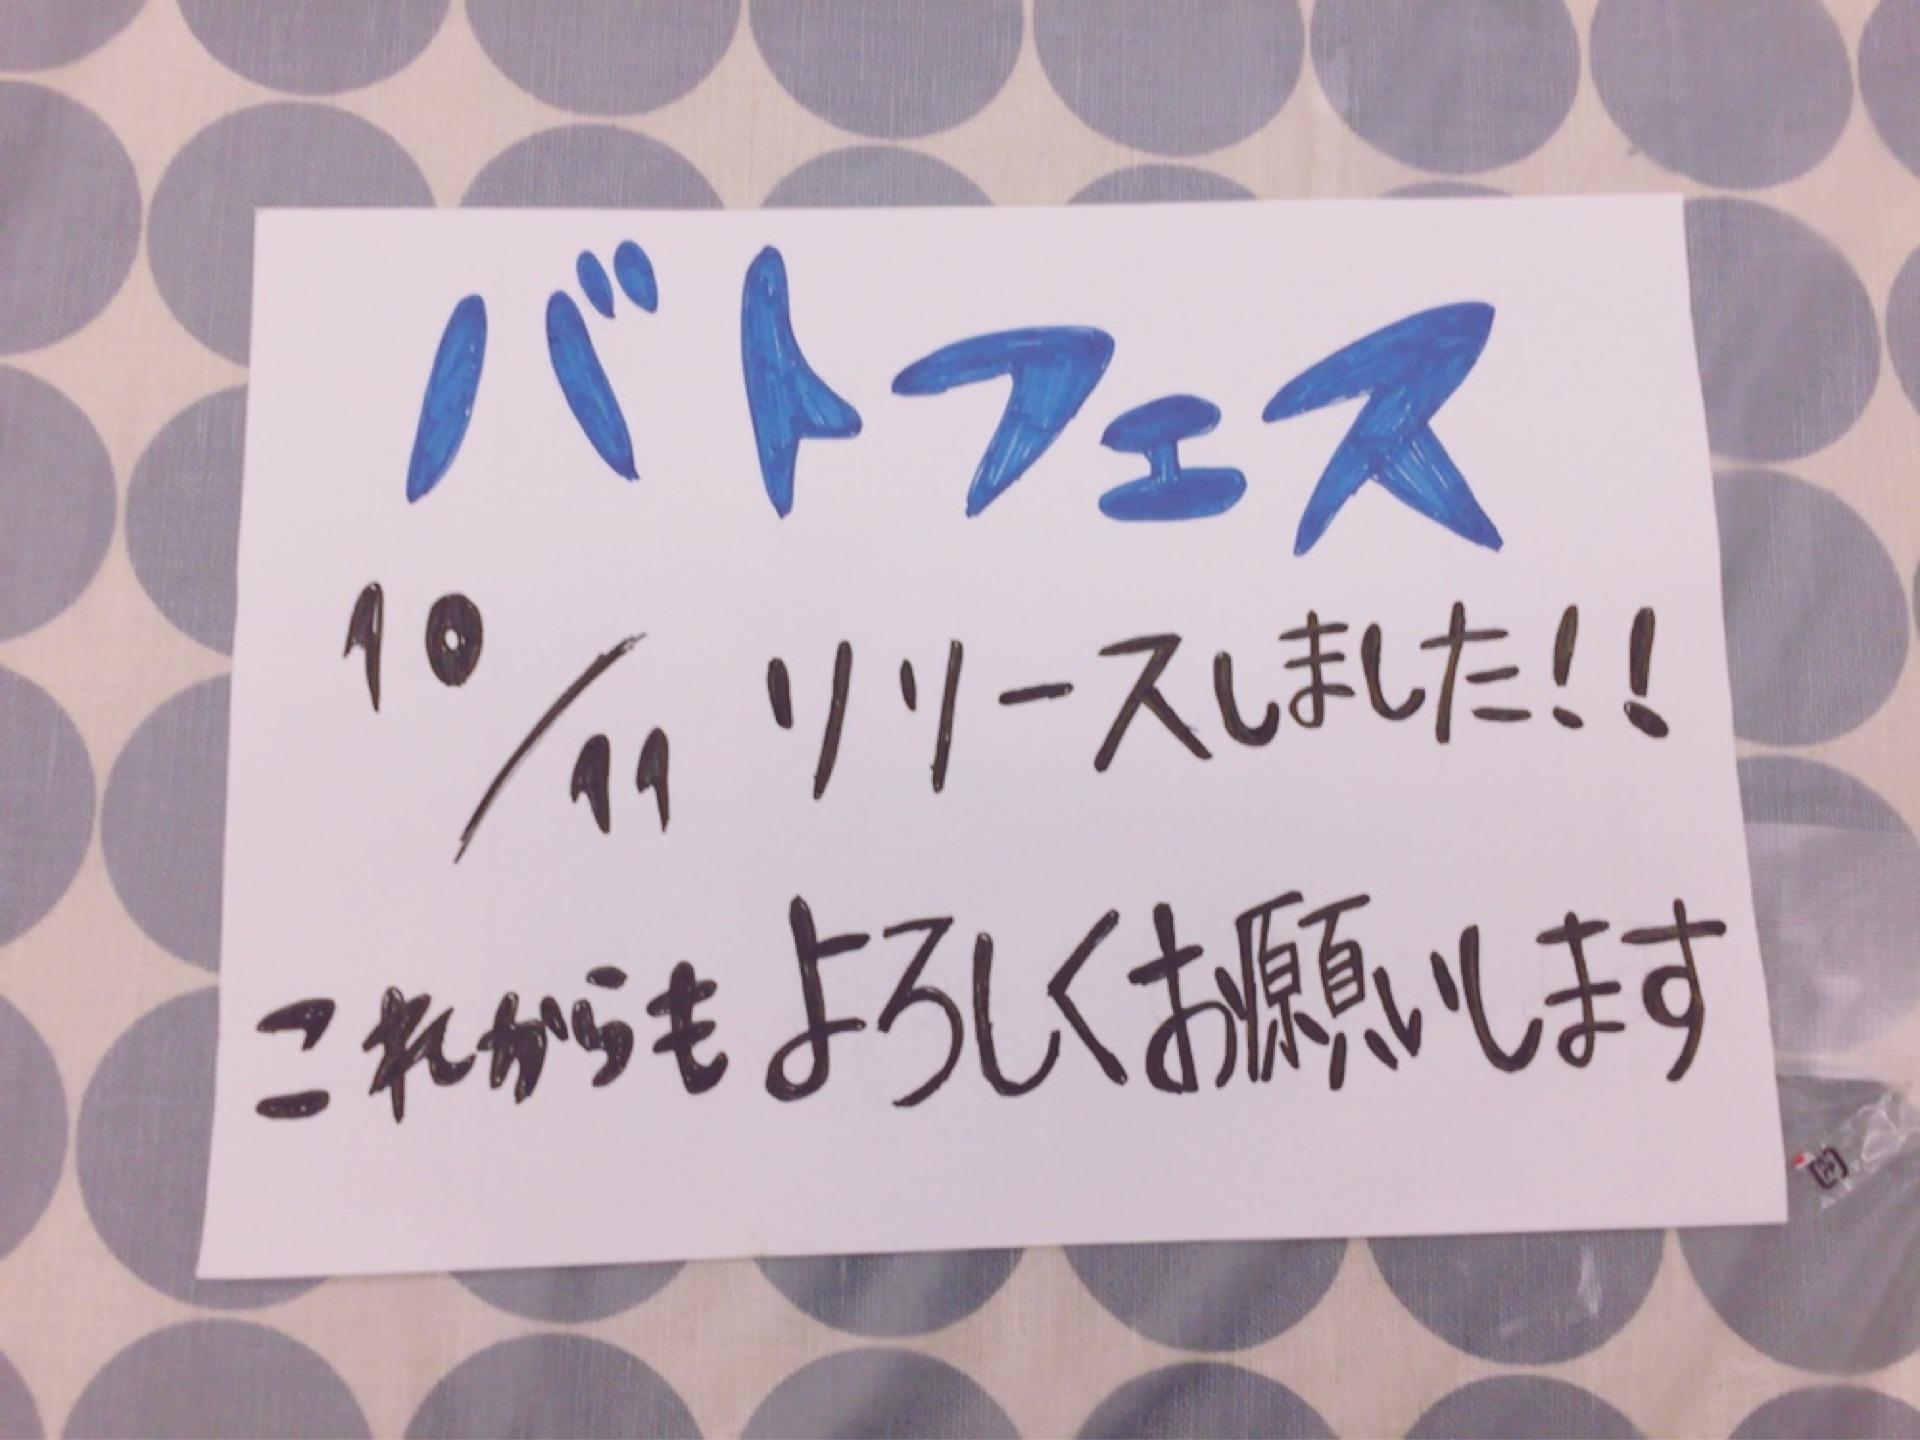 バトフェス
10/11 リリースしました!!
これからもよろしくお願いします